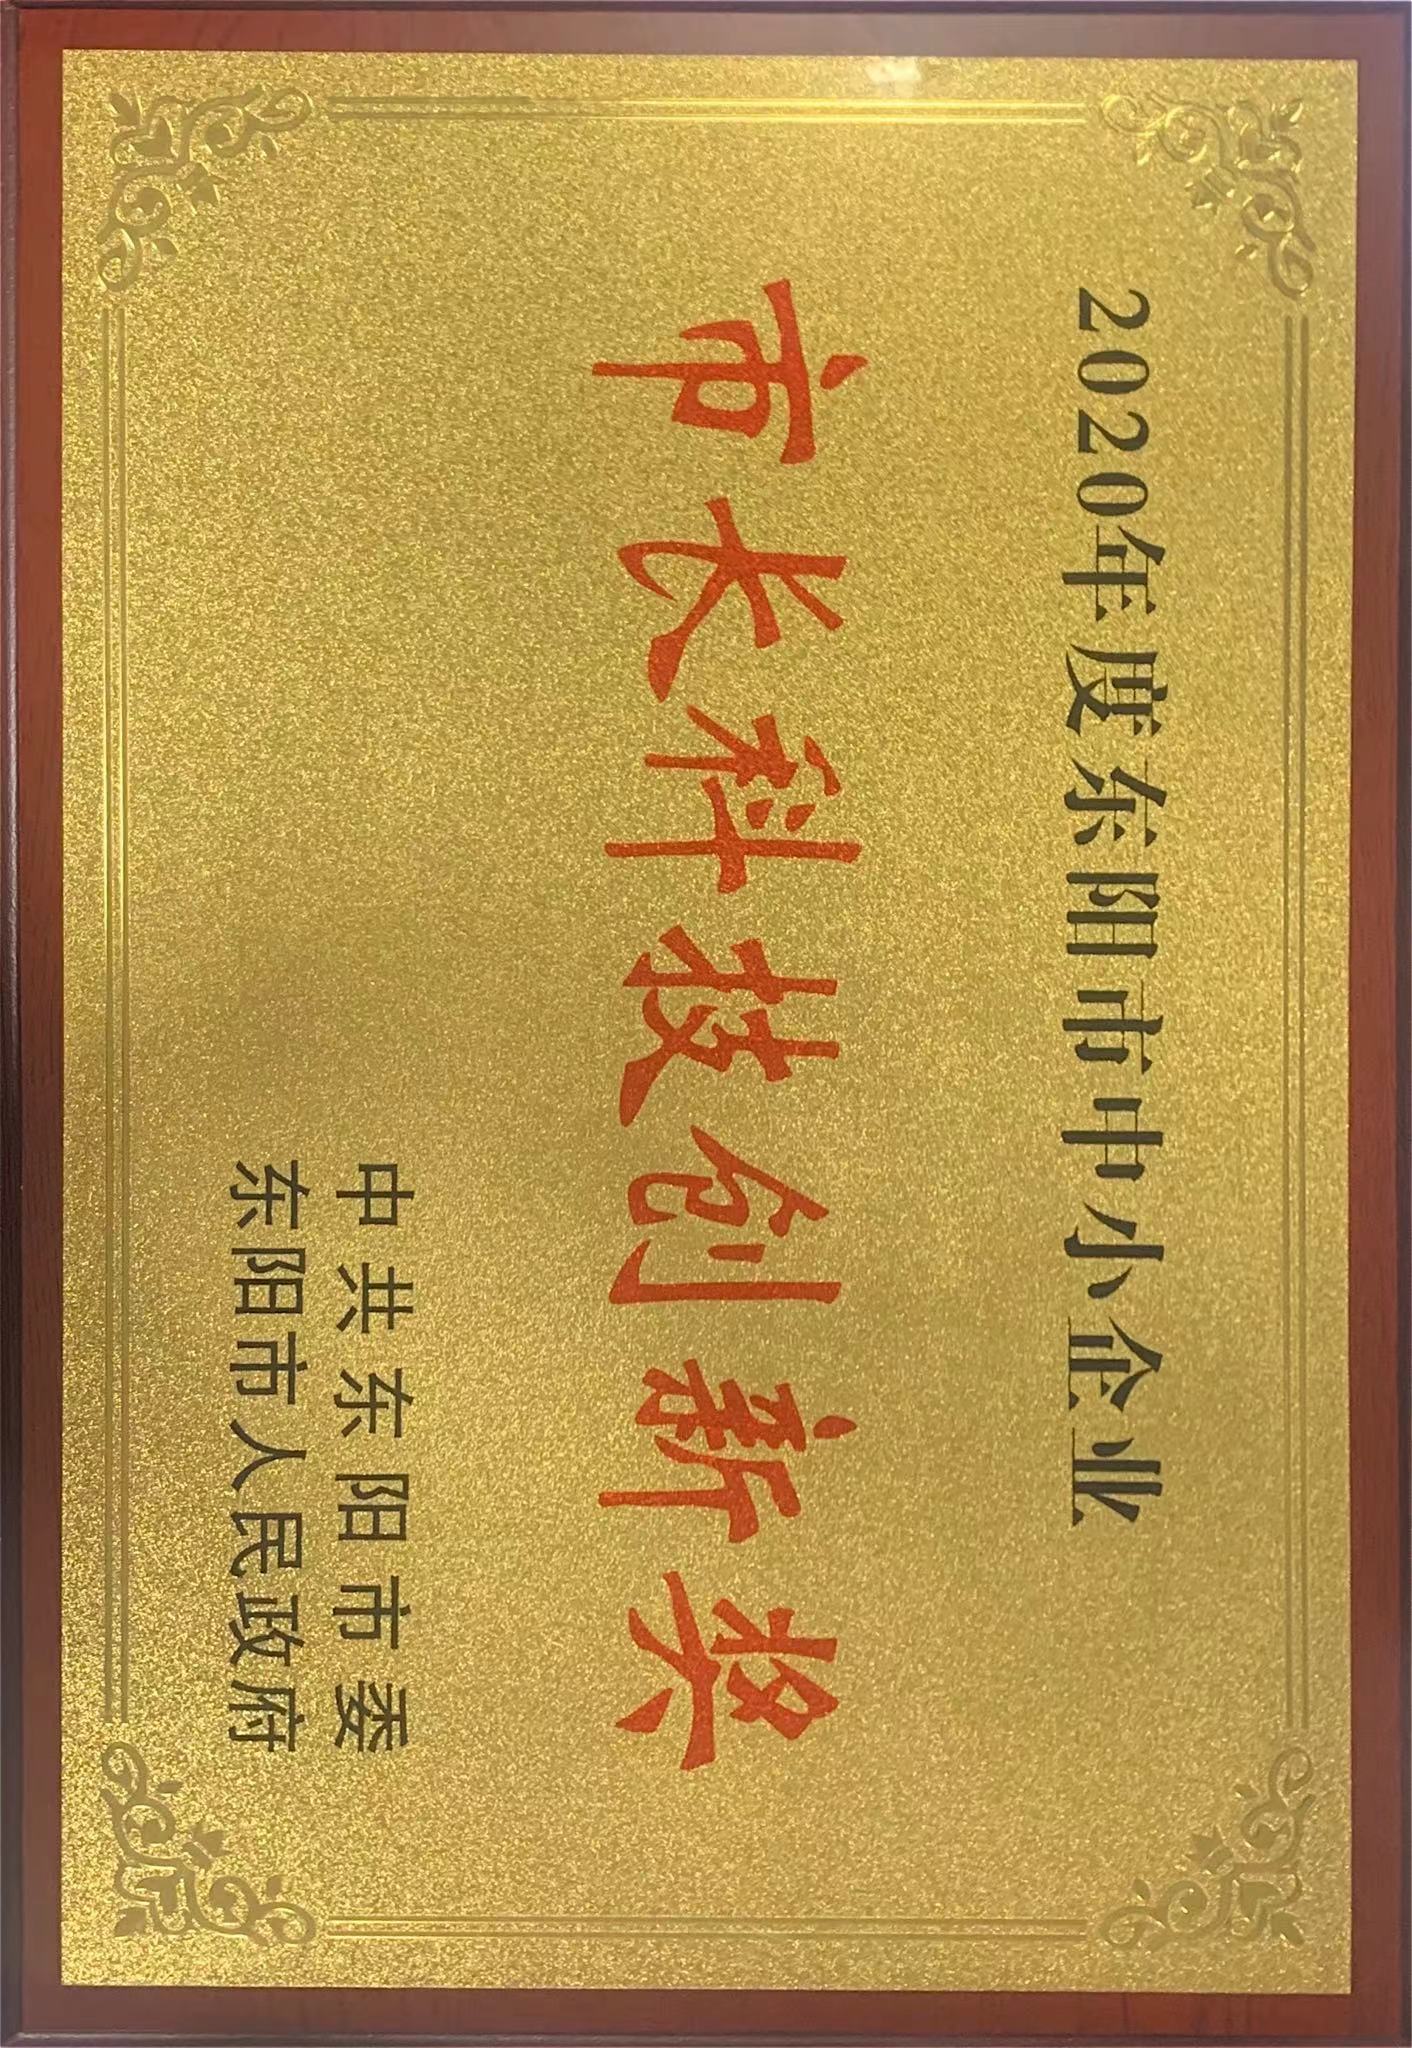 2020年度东阳市中小企业
市长科技创新奖
中共东阳市委
东阳市人民政府